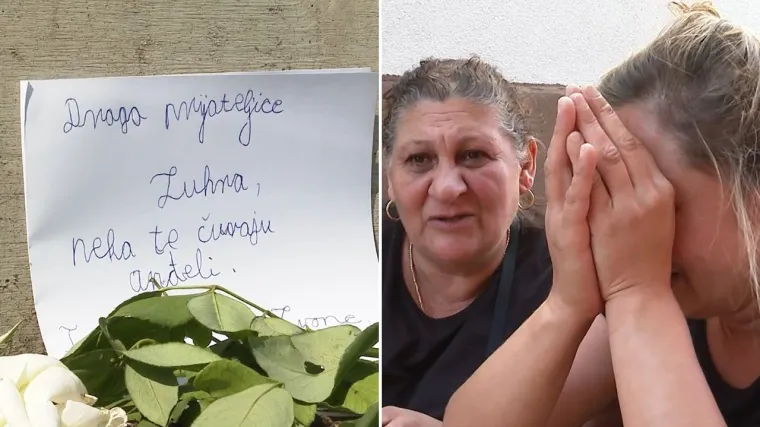 Draga prijateljice
Zuhra,
neka te čuvaju
anđeli.